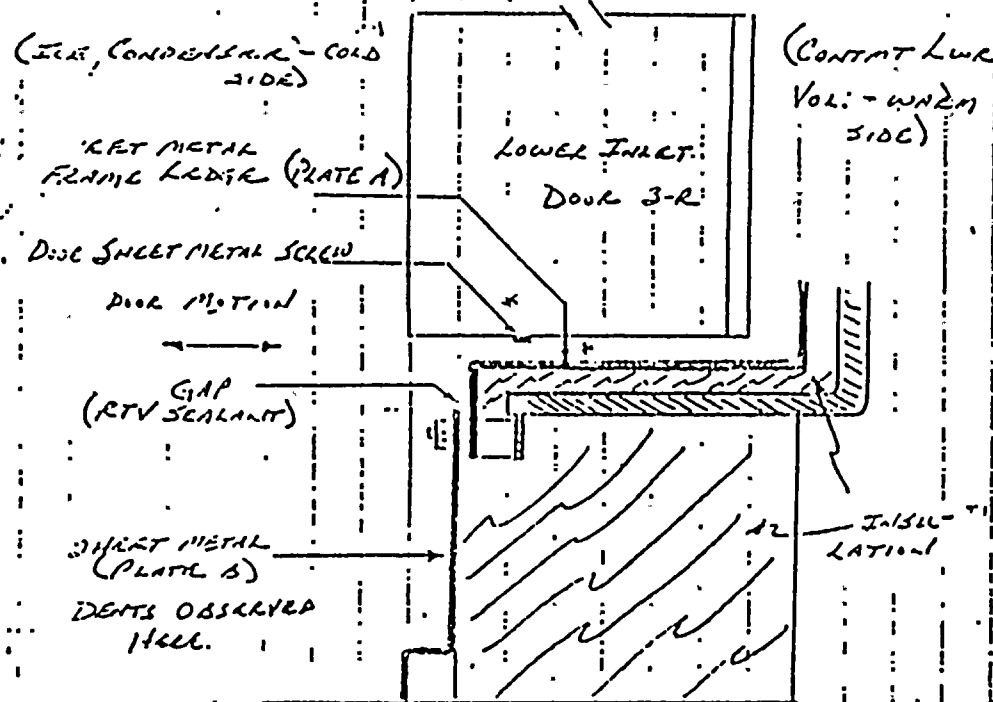 (ICE, CONDENSER - COLD
SIDE)
(CONTMT LWR
VOL: - WARM
SIDE)
METAL
FRAME LEDGE (PLATE A)
LOWER INLET
DOOR 3-R
DOOR SHEET METAL SCREW
DOOR MOTION
GAP
(RTV SEALANT)
SHEET METAL
(PLATE B)
DENTS OBSERVED
HERE.
INSU-
LATION